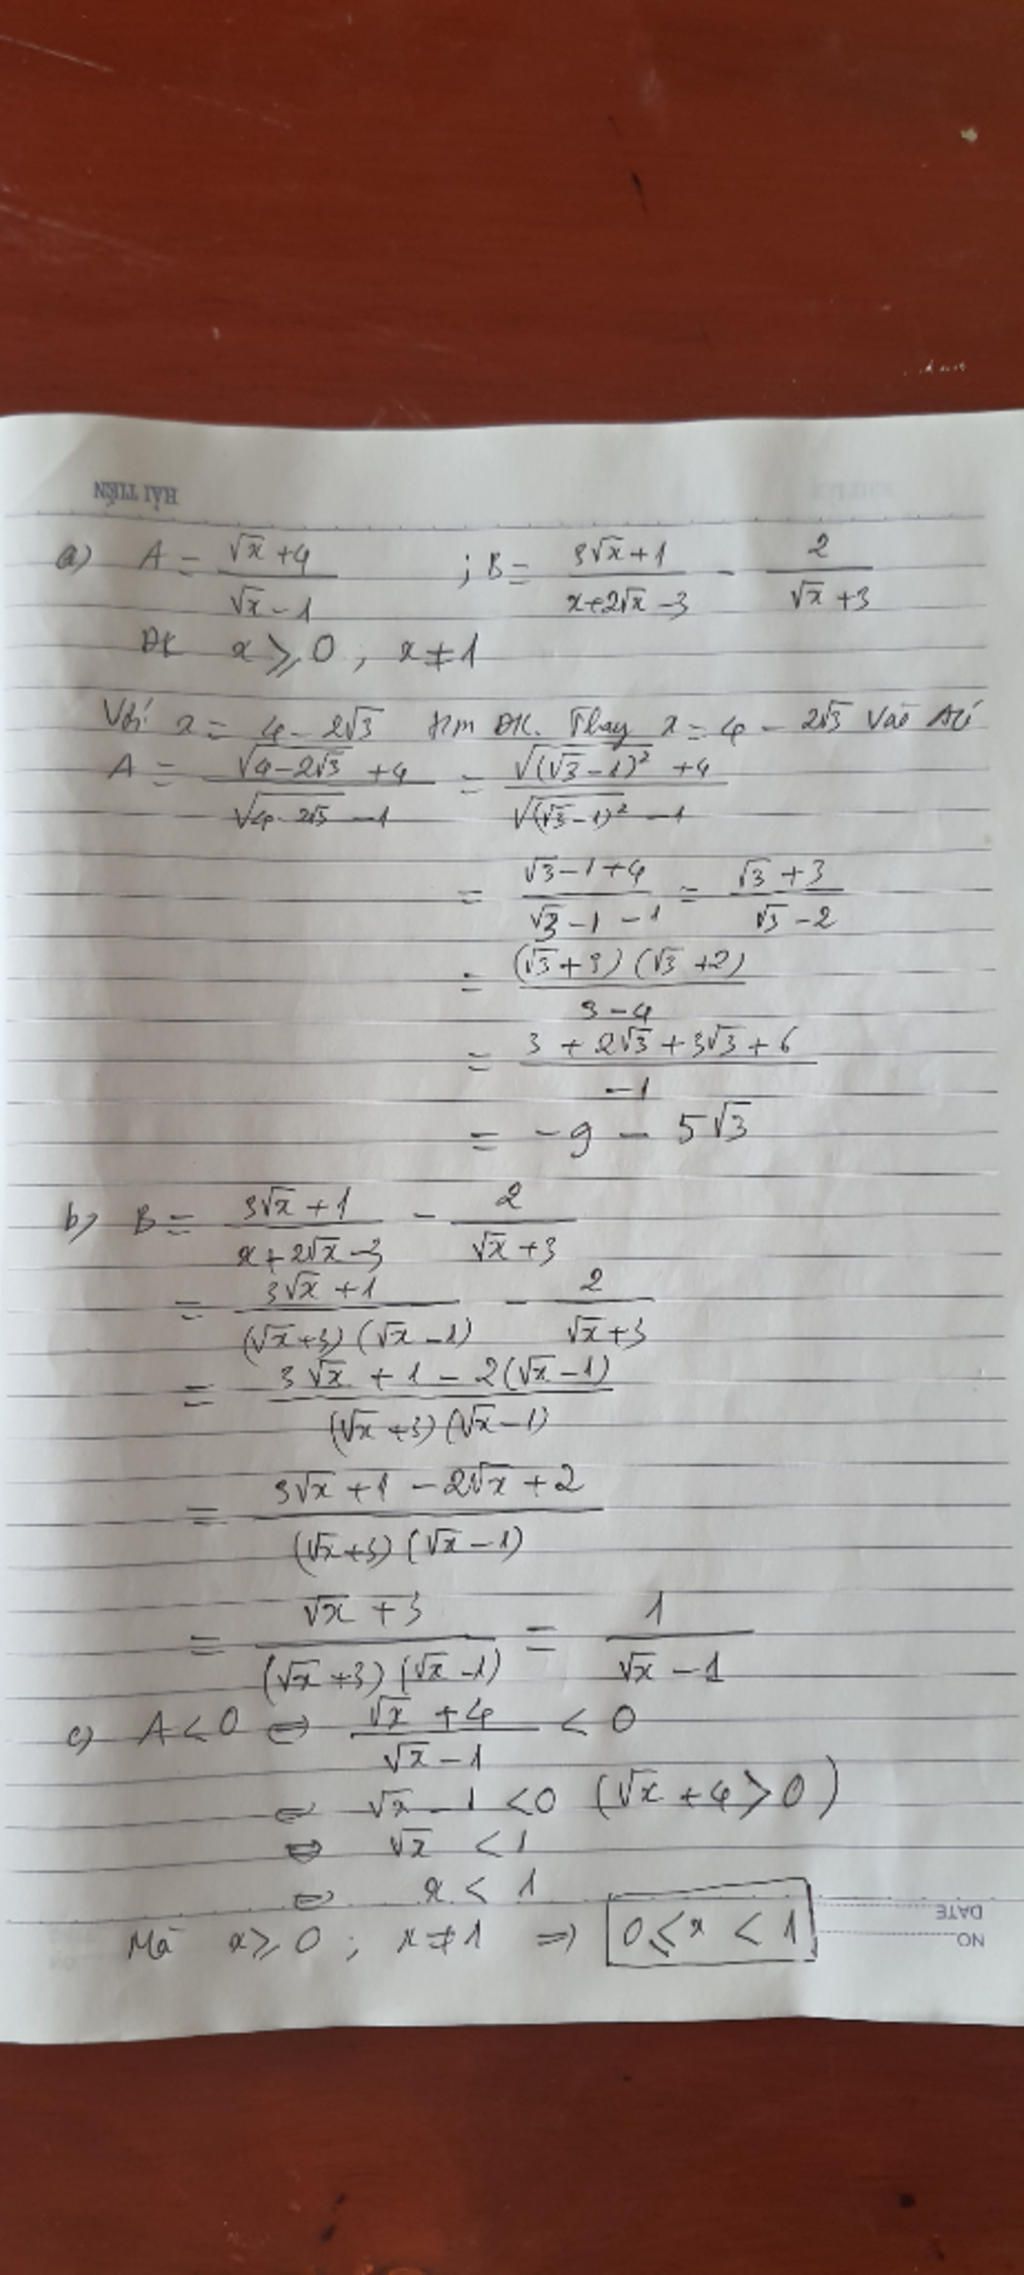 HẢI TIẾN
a) A = (√x + 4)/(√x - 1) ; B = (3√x + 1)/(x + 2√x - 3) - 2/(√x + 3)
ĐK x ⩾ 0 ; x ≠ 1
Với x = 4 - 2√3 t/m ĐK. Thay x = 4 - 2√3 vào A có
A = (√(4 - 2√3) + 4)/(√(4 - 2√3) - 1) = (√((√3 - 1)²) + 4)/(√((√3 - 1)²) - 1)
= (√3 - 1 + 4)/(√3 - 1 - 1) = (√3 + 3)/(√3 - 2)
= (√3 + 3)(√3 + 2)/(3 - 4)
= (3 + 2√3 + 3√3 + 6)/(-1)
= -9 - 5√3
b) B = (3√x + 1)/(x + 2√x - 3) - 2/(√x + 3)
= (3√x + 1)/((√x + 3)(√x - 1)) - 2/(√x + 3)
= (3√x + 1 - 2(√x - 1))/((√x + 3)(√x - 1))
= (3√x + 1 - 2√x + 2)/((√x + 3)(√x - 1))
= (√x + 3)/((√x + 3)(√x - 1)) = 1/(√x - 1)
c) A < 0 ⇔ (√x + 4)/(√x - 1) < 0
⇔ √x - 1 < 0 (√x + 4 > 0)
⇔ √x < 1
⇔ x < 1
Mà x ⩾ 0 ; x ≠ 1 ⇒ 0 ⩽ x < 1
DATE
NO